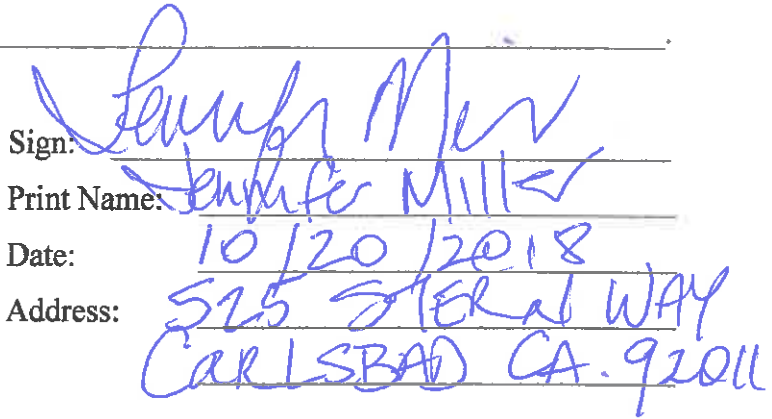 Sign: Jennifer Miller
Print Name: Jennifer Miller
Date: 10/20/2018
Address: 525 WAY
CARLSBAD CA. 92011